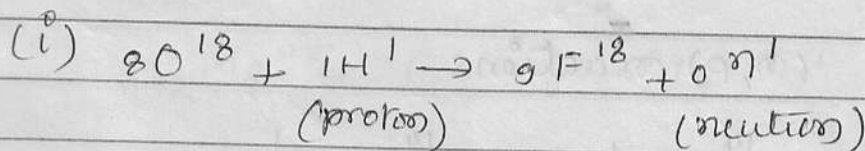 (i) ₈O¹⁸ + ₁H¹ → ₉F¹⁸ + ₀n¹
(proton) (neutron)